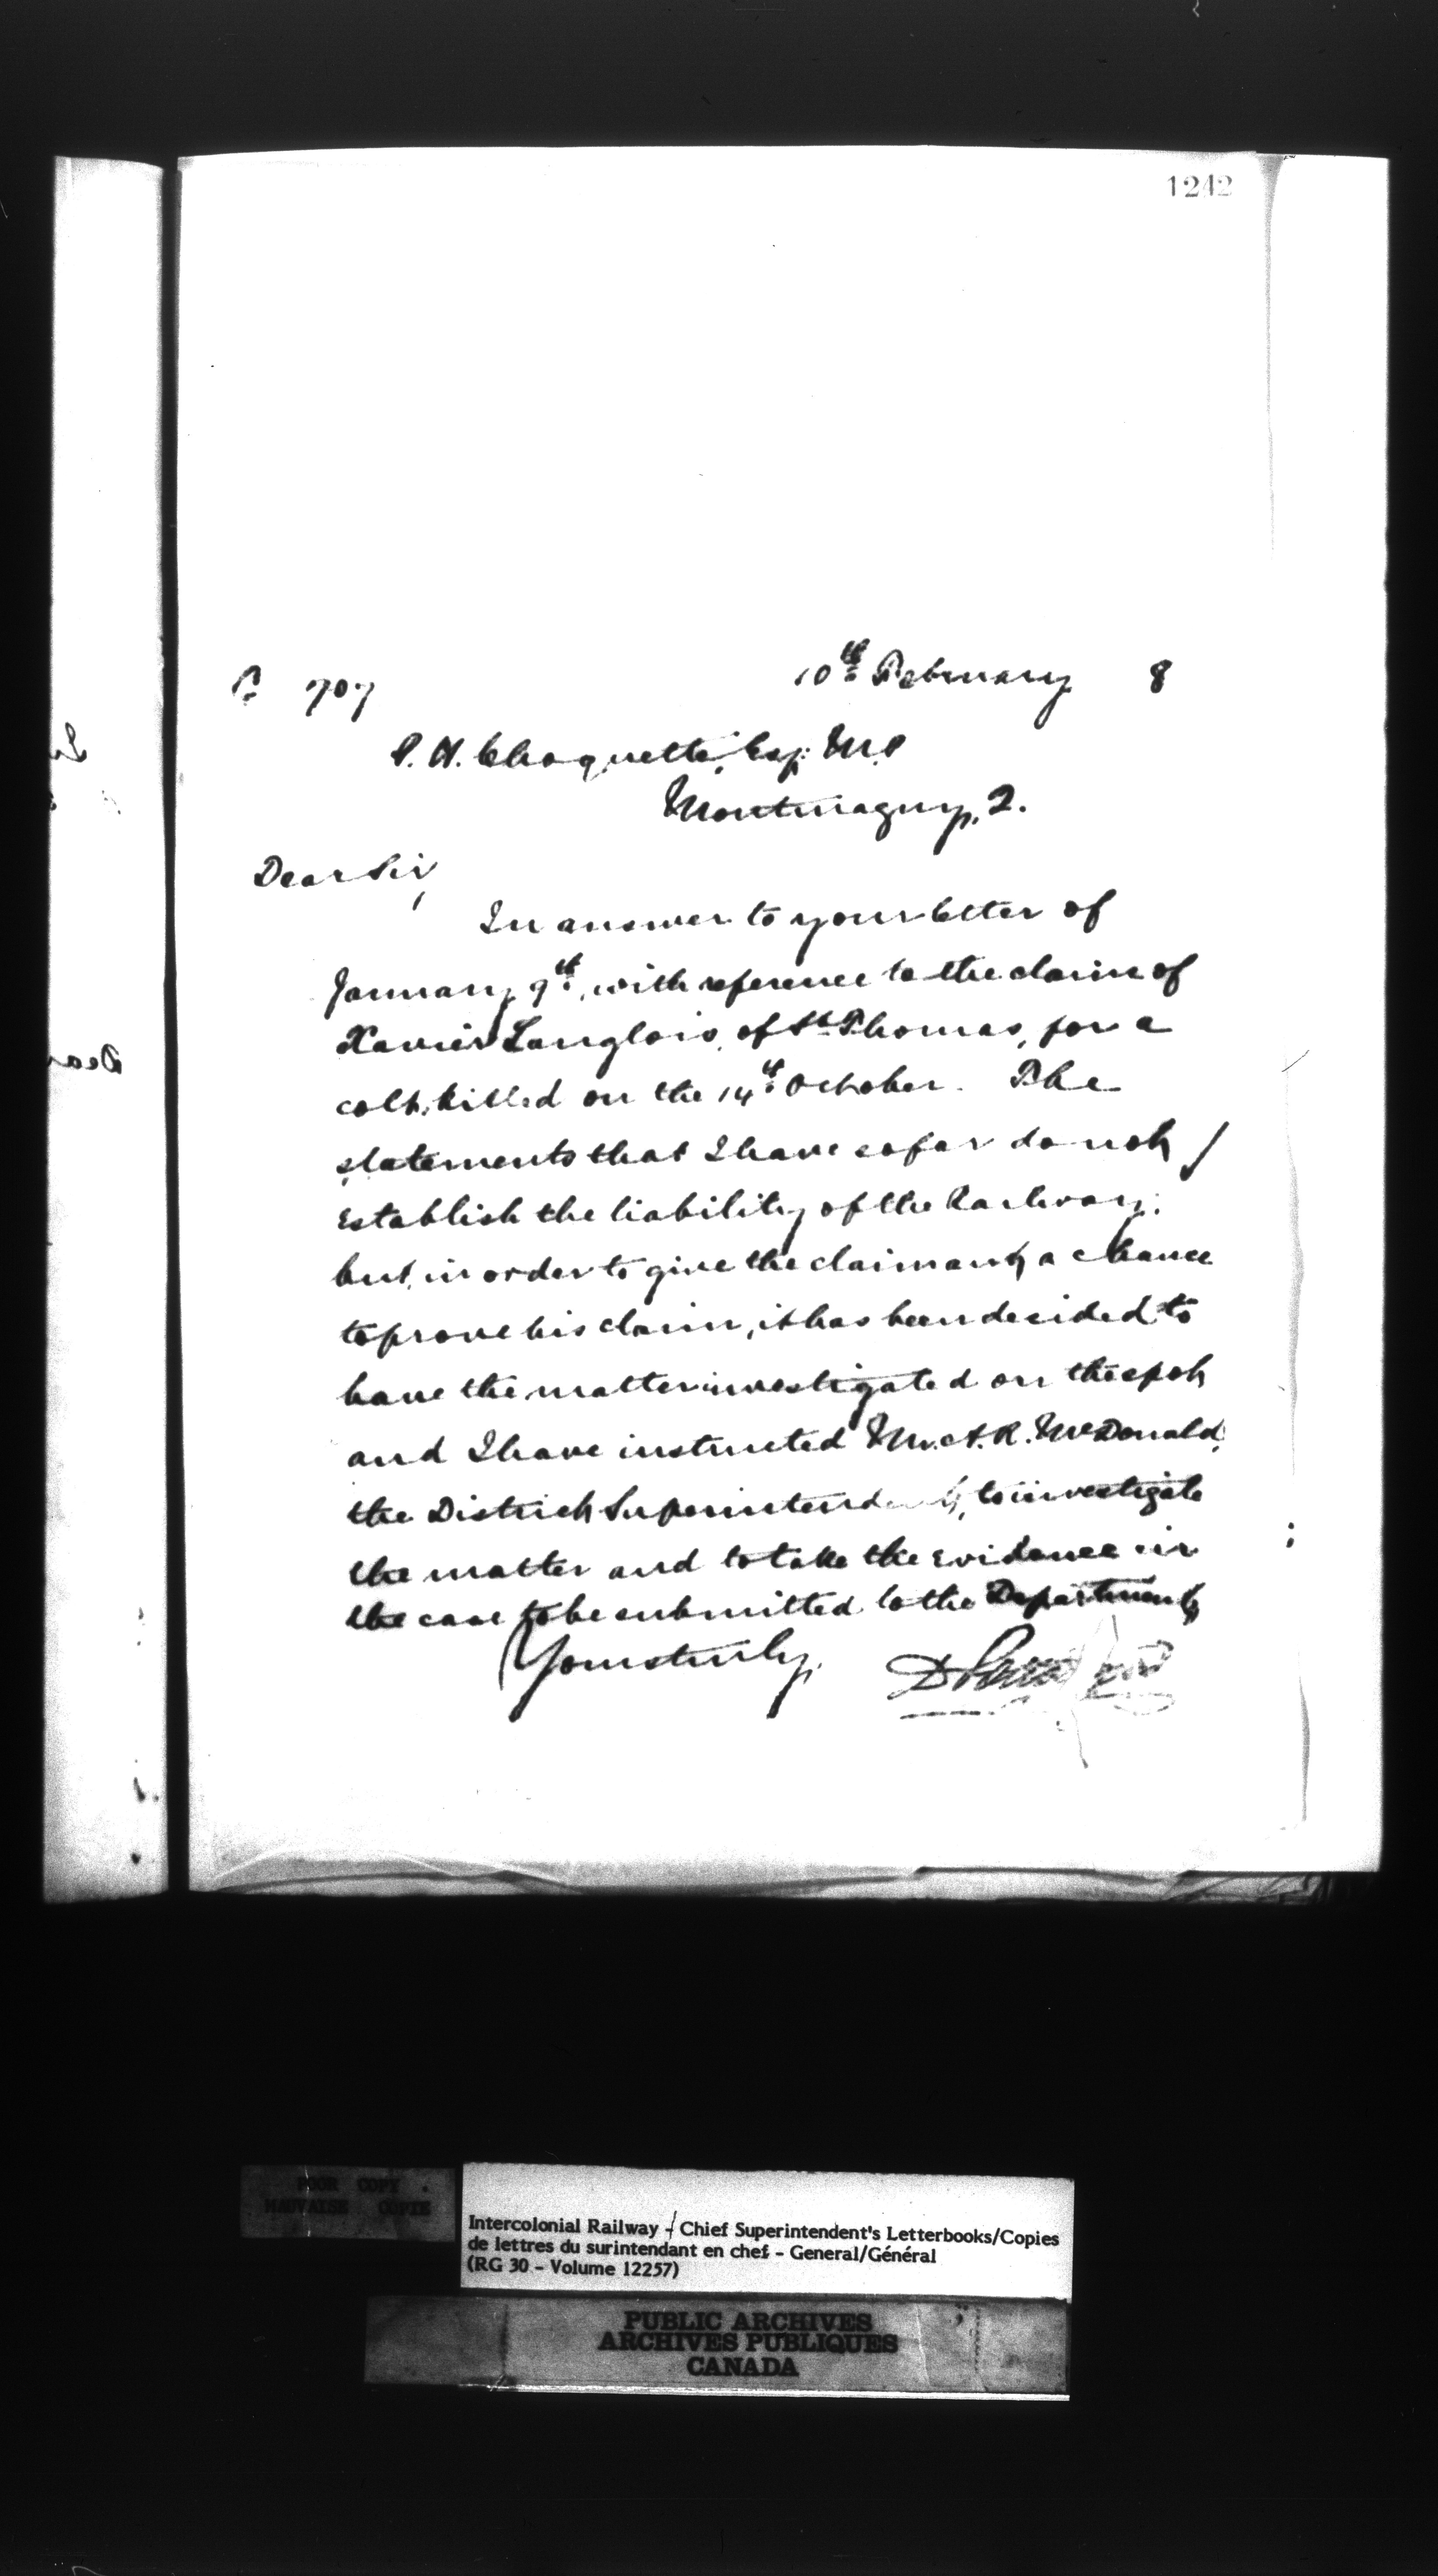 1242
10th February 8
C 707
P. A. Choquette, Esq. M.P
Montmagny, Q.
Dear Sir,
In answer to your letter of
January 9th, with reference to the claim of
Xavier Langlois, of St Thomas, for a
colt killed on the 14th October. The
statements that I have so far do not
establish the liability of the Railway;
but, in order to give the claimant a chance
to prove his claim, it has been decided to
have the matter investigated on the spot
and I have instructed Mr. A. R. McDonald,
the District Superintendent, to investigate
the matter and to take the evidence in
the case to be submitted to the Department
Yours truly,
D Pottinger
Dear
POOR COPY
MAUVAISE COPIE
Intercolonial Railway - Chief Superintendent's Letterbooks/Copies
de lettres du surintendant en chef - General/Général
(RG 30 - Volume 12257)
PUBLIC ARCHIVES
ARCHIVES PUBLIQUES
CANADA